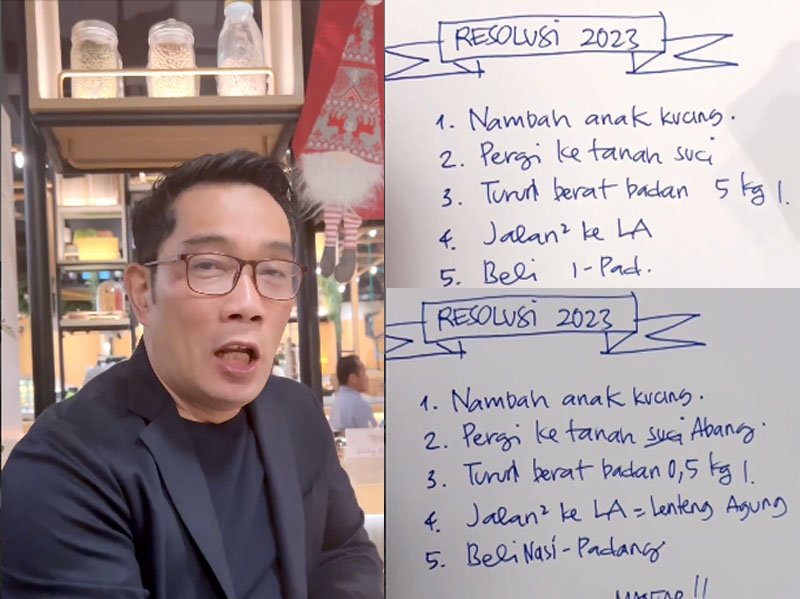 RESOLUSI 2023
1. Nambah anak kucing.
2. Pergi ke tanah suci
3. Turun berat badan 5 kg !.
4. Jalan² ke LA
5. Beli I-Pad.
RESOLUSI 2023
1. Nambah anak kucing.
2. Pergi ke tanah suci Abang.
3. Turun berat badan 0,5 kg !.
4. Jalan² ke LA = Lenteng Agung
5. Beli Nasi-Padang